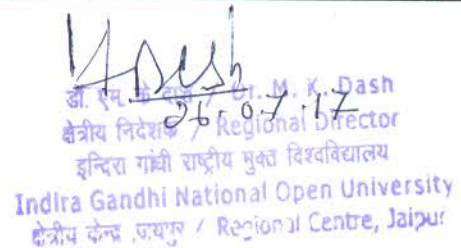 डॉ. एम. के. दाश / Dr. M. K. Dash
26.07.17
क्षेत्रीय निदेशक / Regional Director
इन्दिरा गांधी राष्ट्रीय मुक्त विश्वविद्यालय
Indira Gandhi National Open University
क्षेत्रीय केन्द्र ,जयपुर / Regional Centre, Jaipur